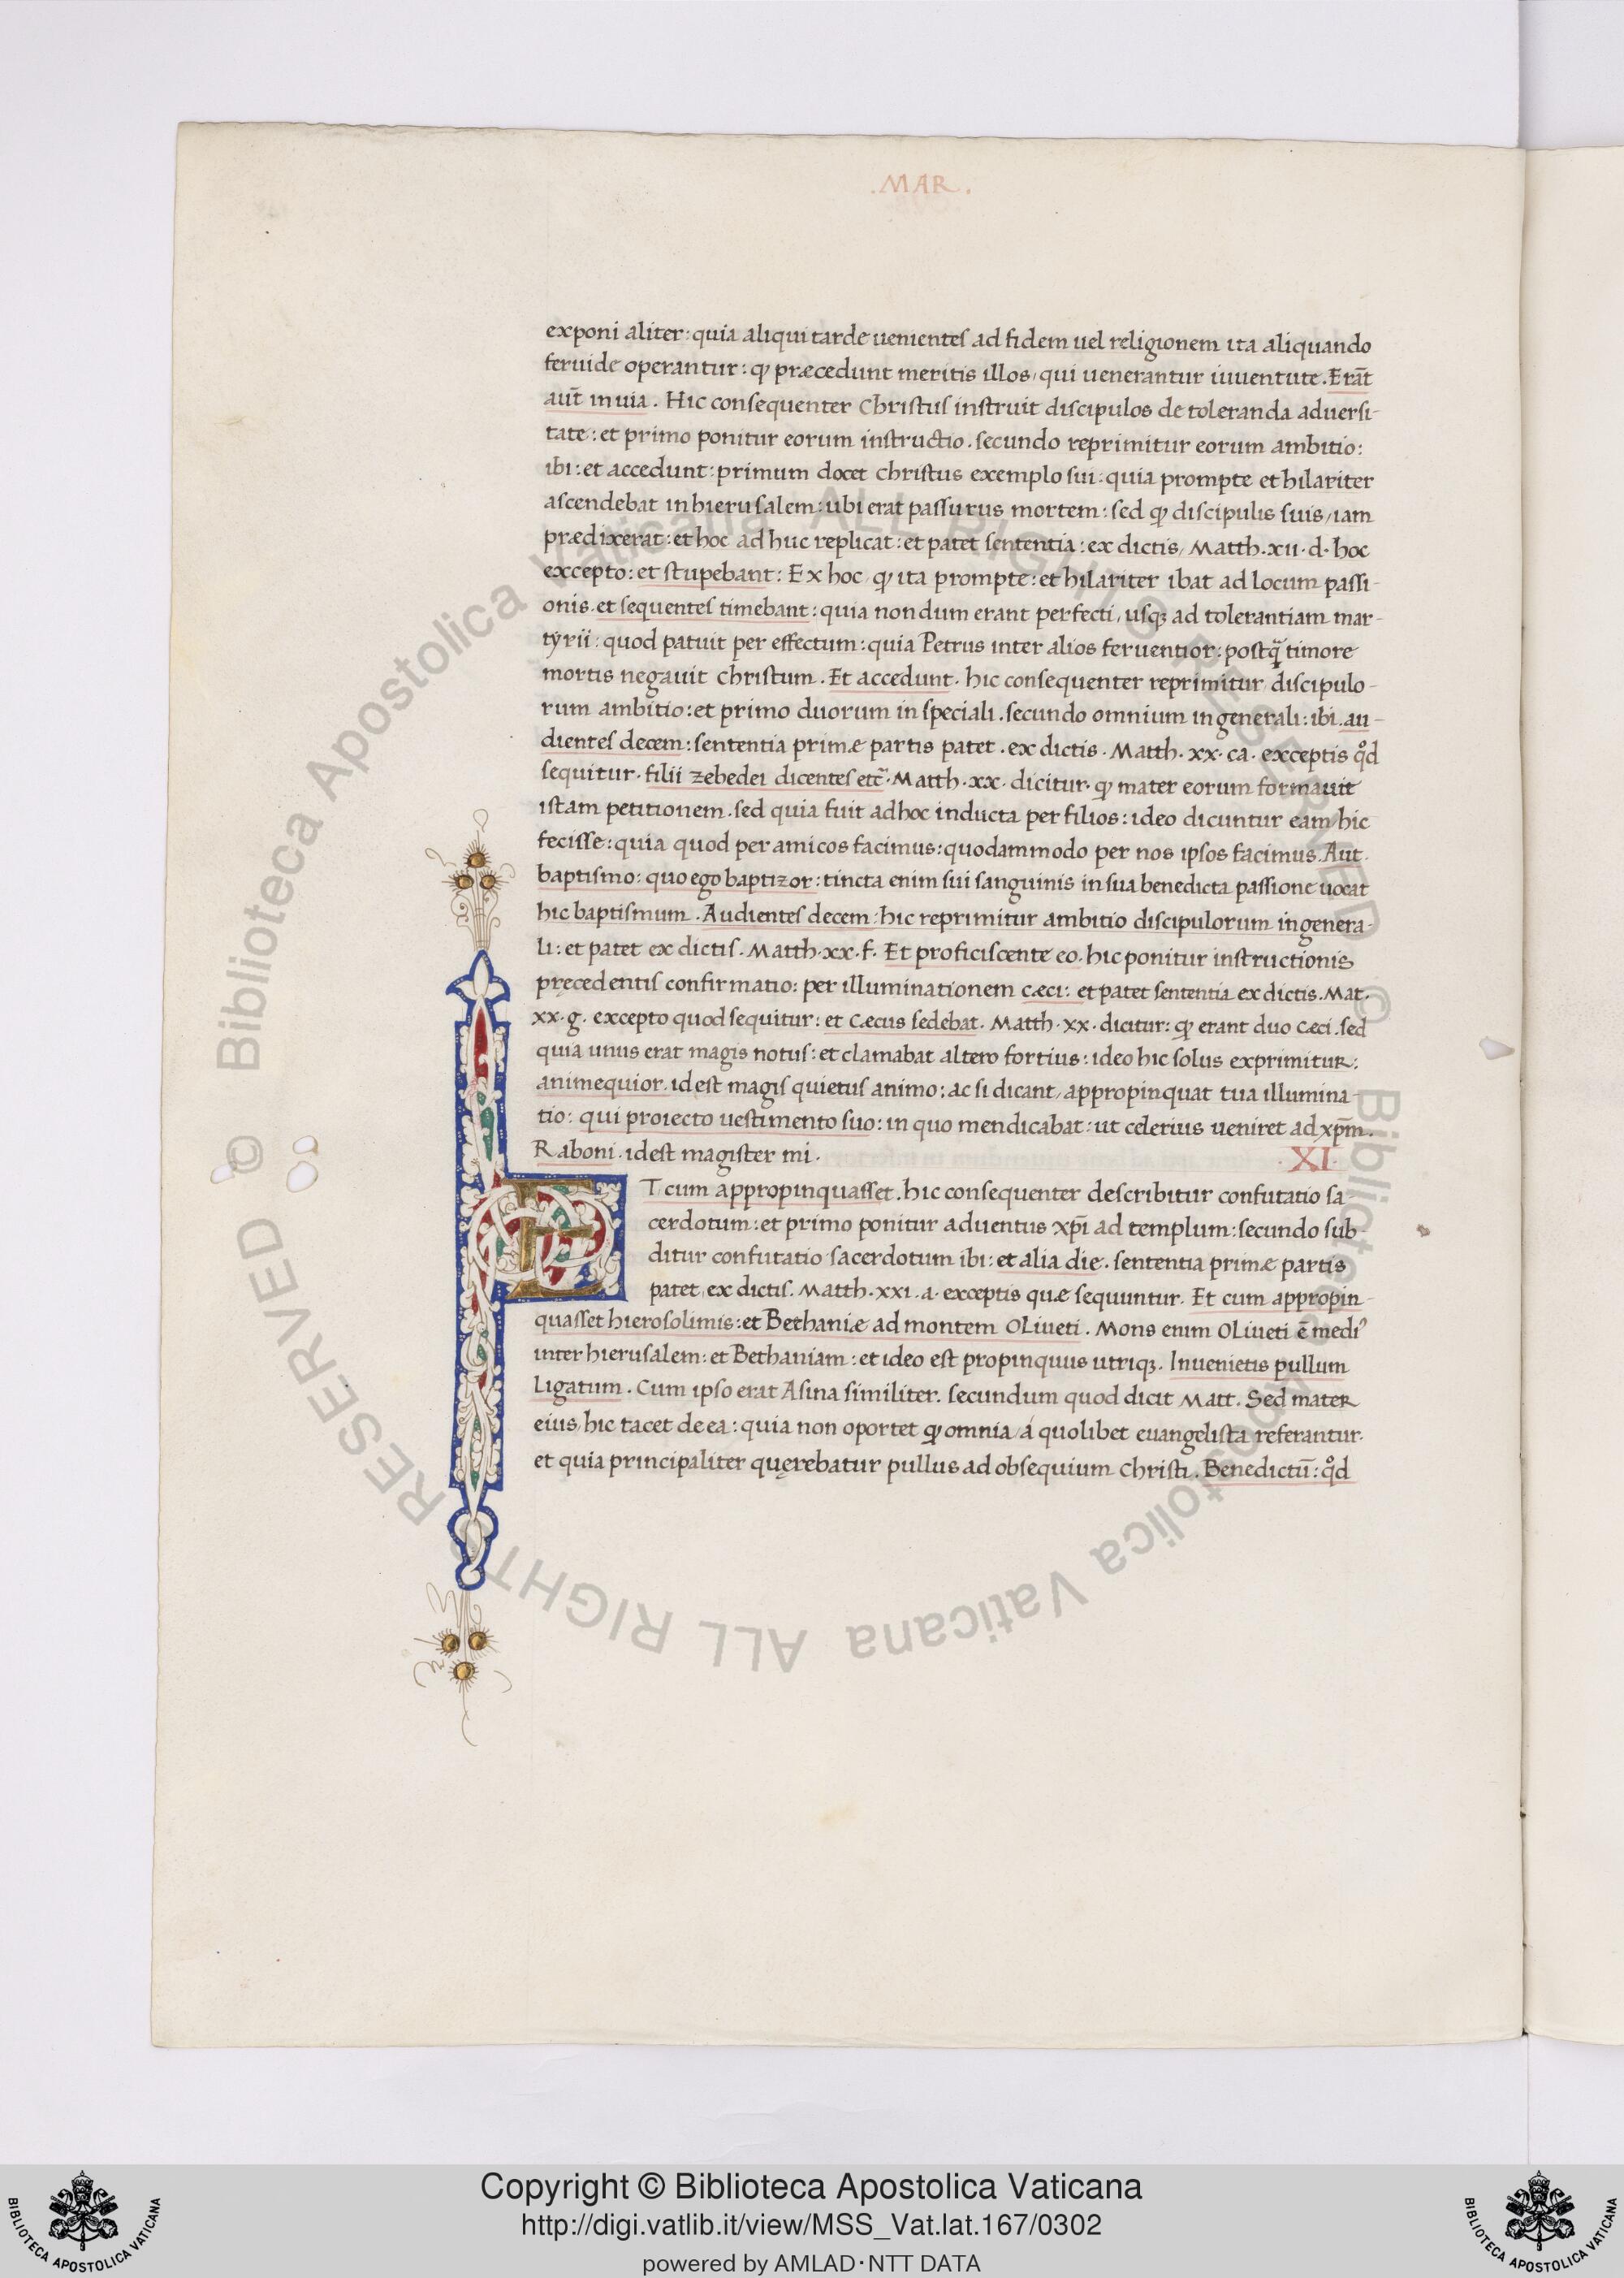 .MAR.
exponi aliter: quia aliqui tarde uenientes ad fidem uel religionem ita aliquando
feruide operantur: ꝙ præcedunt meritis illos, qui uenerantur iuuentute. Erāt
aut̄ in uia. Hic consequenter Christus instruit discipulos de toleranda aduersi-
tate: et primo ponitur eorum instructio. secundo reprimitur eorum ambitio:
ibi: et accedunt: primum docet christus exemplo sui: quia prompte et hilariter
ascendebat in hierusalem: ubi erat passurus mortem: sed ꝙ discipulis suis, iam
prædixerat: et hoc ad huc replicat: et patet sententia: ex dictis, Matth. xii. d. hoc
excepto: et stupebant: Ex hoc, ꝙ ita prompte: et hilariter ibat ad locum passi-
onis. et sequentes timebant: quia non dum erant perfecti, usqꝫ ad tolerantiam mar-
tyrii: quod patuit per effectum: quia Petrus inter alios feruentior: postq̄ timore
mortis negauit christum. Et accedunt. hic consequenter reprimitur discipulo-
rum ambitio: et primo duorum in speciali. secundo omnium in generali: ibi. au-
dientes decem: sententia primæ partis patet. ex dictis. Matth. xx. ca. exceptis qͦd
sequitur. filii zebedei dicentes etc̄. Matth. xx. dicitur. ꝙ mater eorum formauit
istam petitionem. sed quia fuit ad hoc inducta per filios: ideo dicuntur eam hic
fecisse: quia quod per amicos facimus: quodammodo per nos ipsos facimus. Aut.
baptismo: quo ego baptizor: tincta enim sui sanguinis in sua benedicta passione uocat
hic baptismum. Audientes decem: hic reprimitur ambitio discipulorum in genera-
li: et patet ex dictis. Matth. xx. f. Et proficiscente eo. hic ponitur instructionis
pręcedentis confirmatio: per illuminationem cæci: et patet sententia ex dictis. Mat.
xx. g. excepto quod sequitur: et cæcus sedebat. Matth. xx. dicitur: ꝙ erant duo cæci. sed
quia unus erat magis notus: et clamabat altero fortius: ideo hic solus exprimitur:
animequior. idest magis quietus animo: ac si dicant, appropinquat tua illumina-
tio: qui proiecto uestimento suo: in quo mendicabat: ut celerius ueniret ad xp̄m.
Raboni. idest magister mi.
.XI.
ET cum appropinquasset. hic consequenter describitur confutatio sa-
cerdotum: et primo ponitur aduentus xp̄i ad templum: secundo sub-
ditur confutatio sacerdotum ibi: et alia die. sententia primæ partis
patet, ex dictis. Matth. xxi. a. exceptis quæ sequuntur. Et cum appropin-
quasset hierosolimis: et Bethaniæ ad montem Oliueti. Mons enim Oliueti ē mediꝰ
inter hierusalem: et Bethaniam: et ideo est propinquus utriqꝫ. Inuenietis pullum
Ligatum. Cum ipso erat Asina similiter. secundum quod dicit Matt. Sed mater
eius, hic tacet de ea: quia non oportet ꝙ omnia, á quolibet euangelista referantur.
et quia principaliter quęrebatur pullus ad obsequium christi. Benedictū: qͦd
© Biblioteca Apostolica Vaticana ALL RIGHTS RESERVED
© Biblioteca Apostolica Vaticana ALL RIGHTS RESERVED
BIBLIOTECA APOSTOLICA VATICANA
Copyright © Biblioteca Apostolica Vaticana
http://digi.vatlib.it/view/MSS_Vat.lat.167/0302
powered by AMLAD・NTT DATA
BIBLIOTECA APOSTOLICA VATICANA